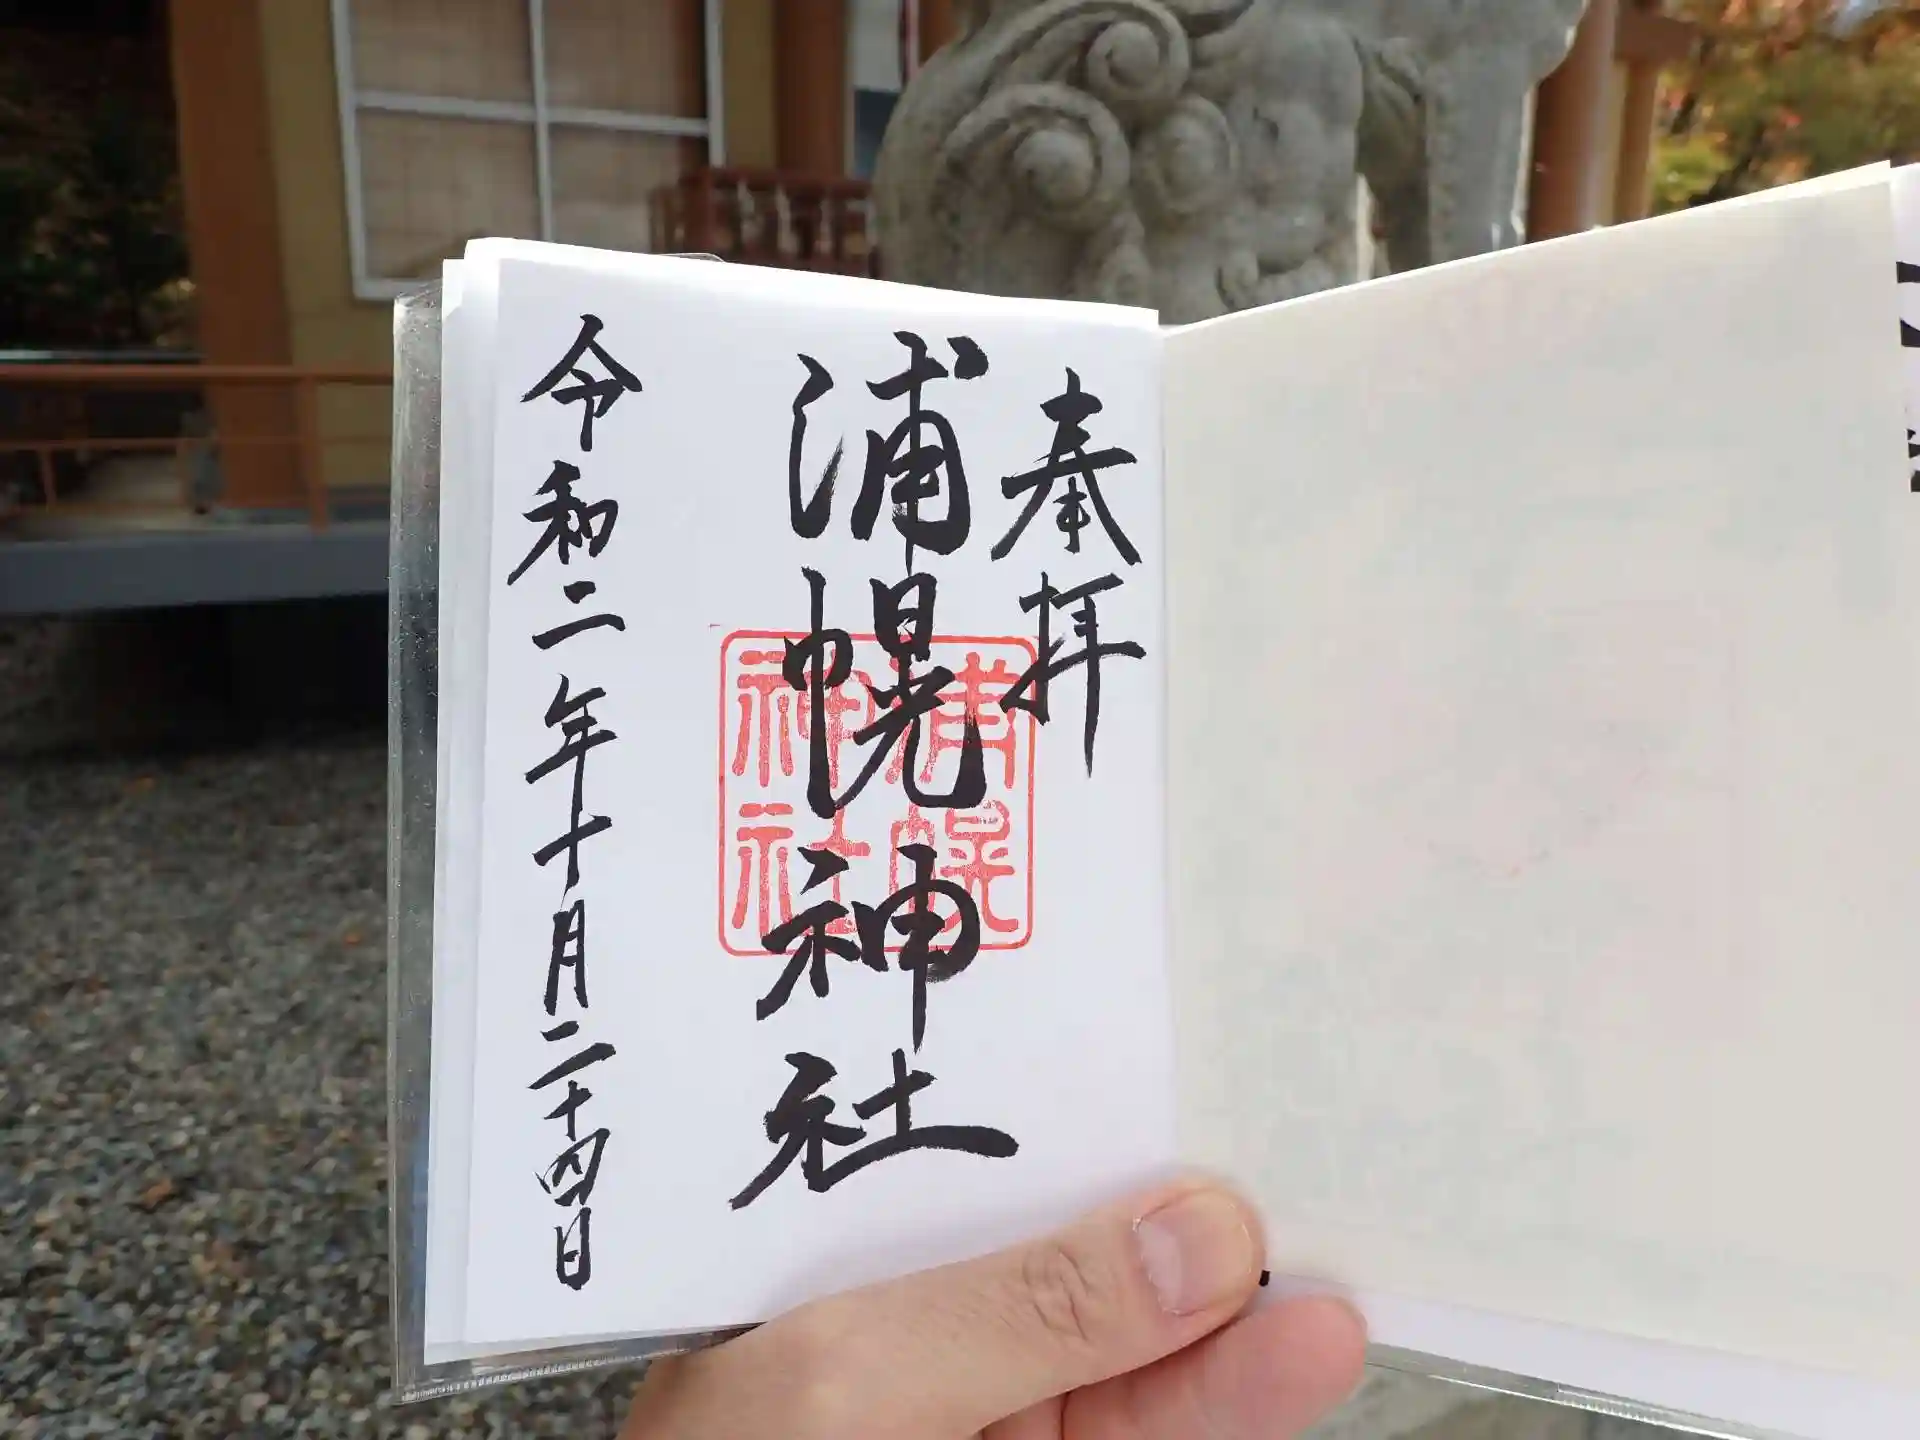 奉拝
浦幌神社
浦幌
神社
令和二年十月二十四日